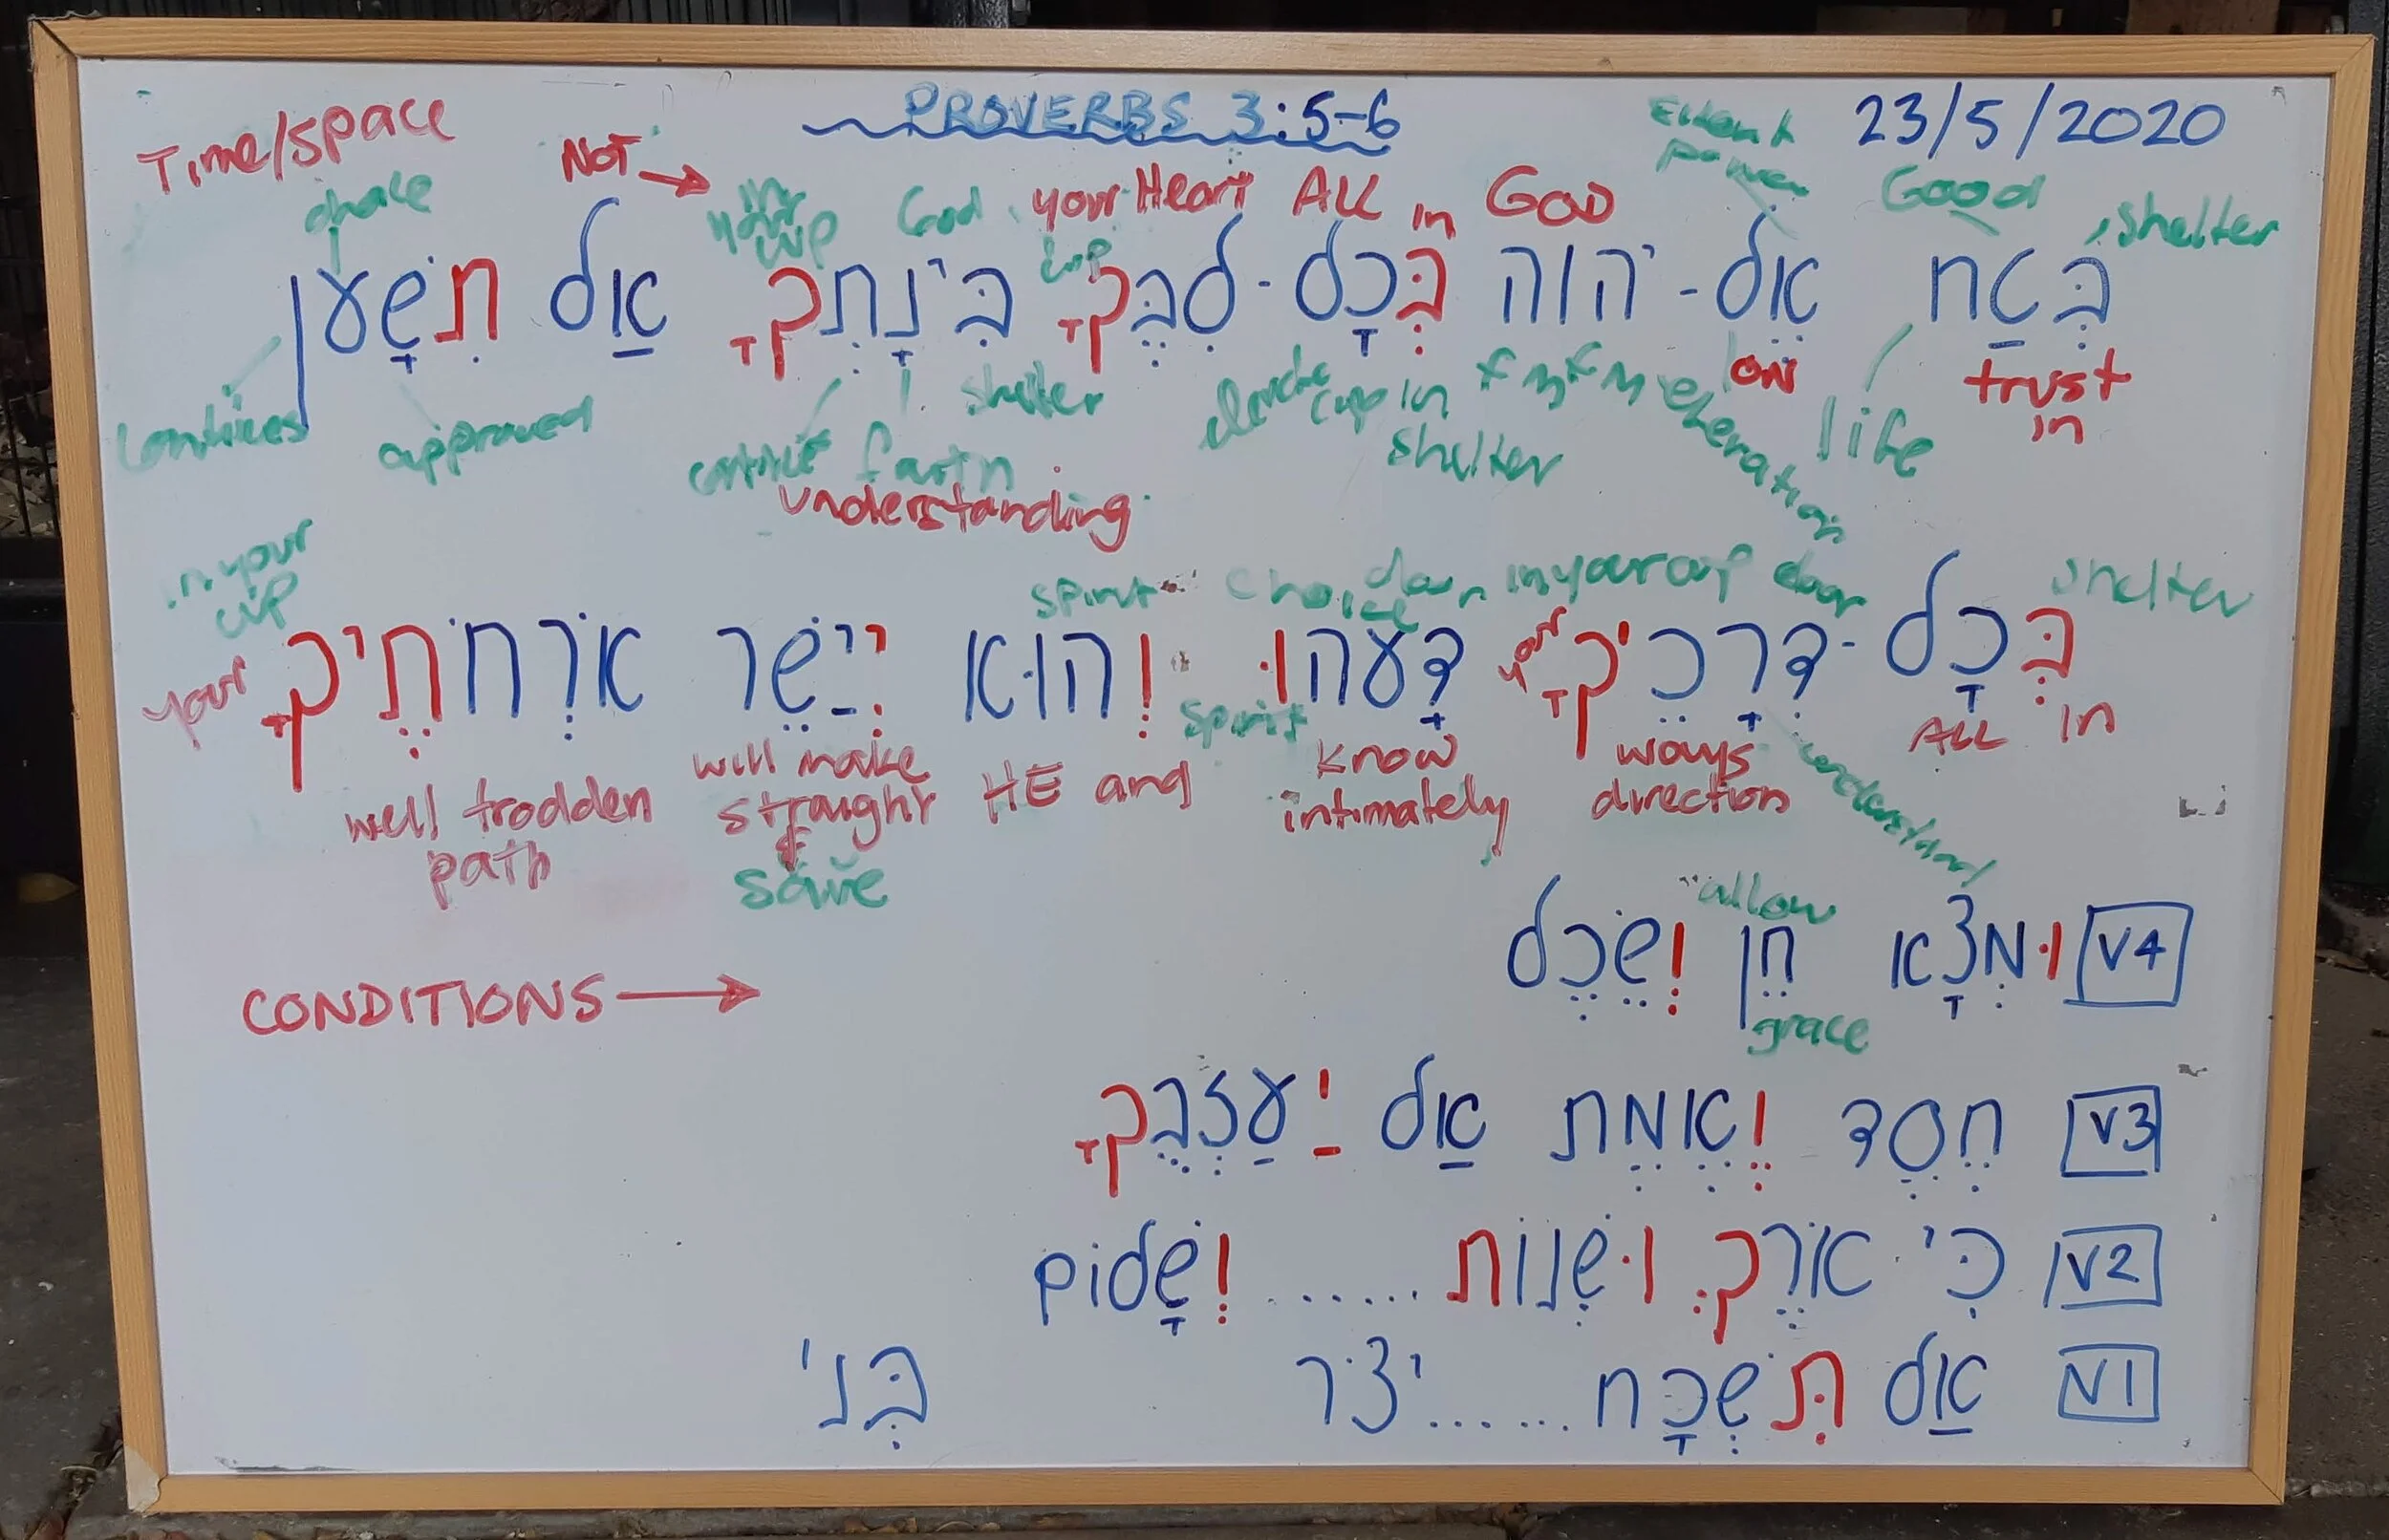 PROVERBS 3:5-6
23/5/2020
Time/space
NOT → your Heart ALL in GOD
Good shelter
God
בְּטַח אֶל-יהוה בְּכָל-לִבֶּךָ בִּינָתְךָ אַל תִּשָׁעֵן
ON trust in
approved shelter in shelter life
faith
understanding
in your cup
spirit door in your cup door shelter
בְּכָל-דְּרָכֶיךָ דָעֵהוּ וְהוּא יְיַשֵּׁר אֹרְחֹתֶיךָ
your your
spirit
ALL in ways direction know intimately HE and will make straight well trodden path
understand
save
allow
V4 וּמְצָא חֵן וְשֵׂכֶל
grace
CONDITIONS →
V3 חֶסֶד וֶאֱמֶת אַל יַעַזְבֻךָ
V2 כִּי אֹרֶךְ וּשְׁנוֹת ...... וְשָׁלוֹם
V1 אַל תִּשְׁכָּח ...... יִצֹּר בְּנִי